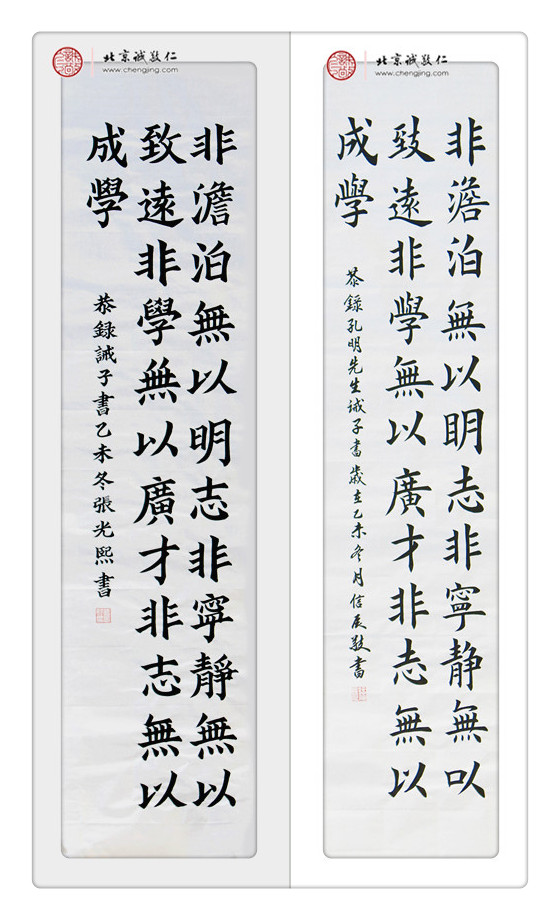 北京诚敬仁
www.chengjing.com
非澹泊無以明志非寧靜無以
致遠非學無以廣才非志無以
成學
恭録誡子書乙未冬張光熙書
北京诚敬仁
www.chengjing.com
非澹泊無以明志非寧静無以
致遠非學無以廣才非志無以
成學
恭録孔明先生诫子書歲在乙未冬月信辰敬書